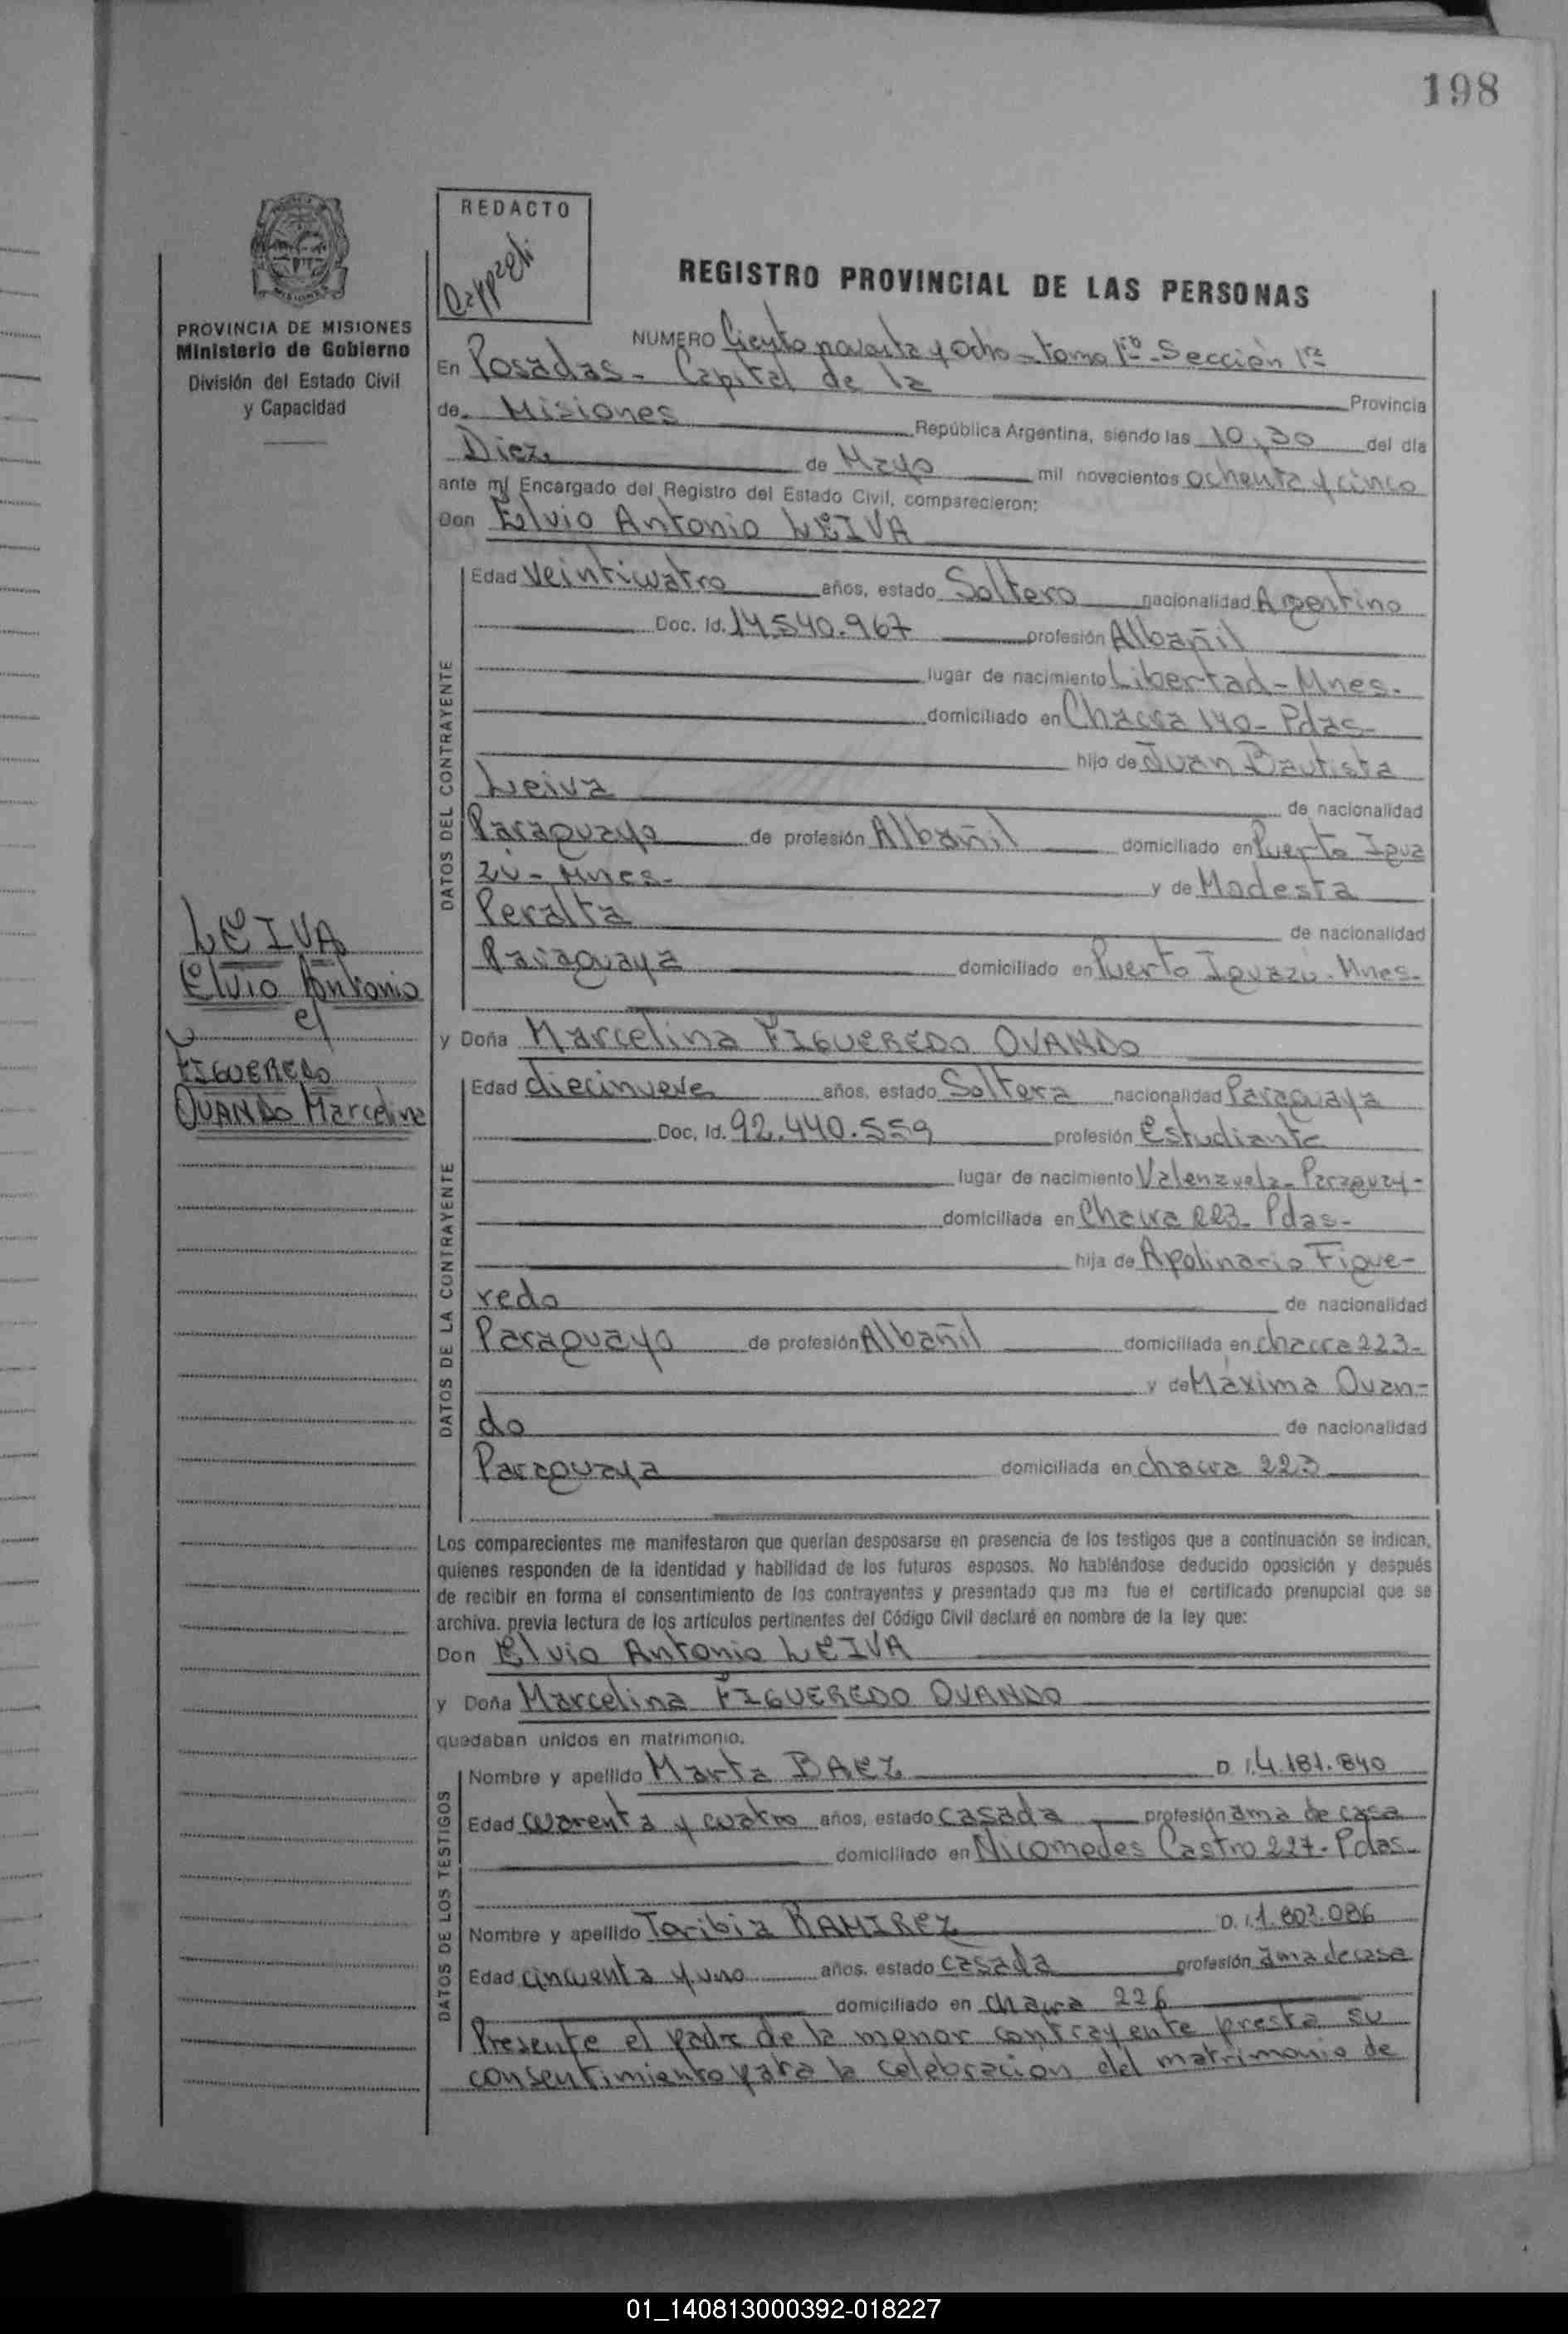 198
REDACTO
REGISTRO PROVINCIAL DE LAS PERSONAS
PROVINCIA DE MISIONES
Ministerio de Gobierno
División del Estado Civil
y Capacidad
NUMERO Ciento noventa y Ocho - tomo 1º - Sección 1ª
En Posadas - Capital de la Provincia
de Misiones República Argentina, siendo las 10,30 del día
Diez de Mayo mil novecientos ochenta y cinco
ante mí Encargado del Registro del Estado Civil, comparecieron:
Don Elvio Antonio LEIVA
DATOS DEL CONTRAYENTE
Edad Veinticuatro años, estado Soltero nacionalidad Argentino
Doc. Id. 14.540.967 profesión Albañil
lugar de nacimiento Libertad - Mnes.
domiciliado en Chacra 140 - Pdas -
hijo de Juan Bautista
Leiva de nacionalidad
Paraguayo de profesión Albañil domiciliado en Puerto Igua
zú - Mnes - y de Modesta
Peralta de nacionalidad
Paraguaya domiciliado en Puerto Iguazú - Mnes -
LEIVA
Elvio Antonio
c/
FIGUEREDO
OVANDO Marcelina
y Doña Marcelina FIGUEREDO OVANDO
DATOS DE LA CONTRAYENTE
Edad diecinueve años, estado Soltera nacionalidad Paraguaya
Doc. Id. 92.440.559 profesión Estudiante
lugar de nacimiento Valenzuela - Paraguay -
domiciliada en Chacra 223 - Pdas -
hija de Apolinario Figue-
redo de nacionalidad
Paraguayo de profesión Albañil domiciliada en chacra 223 -
y de Máxima Ovan-
do de nacionalidad
Paraguaya domiciliada en chacra 223
Los comparecientes me manifestaron que querían desposarse en presencia de los testigos que a continuación se indican,
quienes responden de la identidad y habilidad de los futuros esposos. No habiéndose deducido oposición y después
de recibir en forma el consentimiento de los contrayentes y presentado que me fue el certificado prenupcial que se
archiva. previa lectura de los artículos pertinentes del Código Civil declaré en nombre de la ley que:
Don Elvio Antonio LEIVA
y Doña Marcelina FIGUEREDO OVANDO
quedaban unidos en matrimonio.
DATOS DE LOS TESTIGOS
Nombre y apellido Marta BAEZ D.I. 4.181.840
Edad cuarenta y cuatro años, estado casada profesión ama de casa
domiciliado en Nicomedes Castro 227 - Pdas -
Nombre y apellido Toribia RAMIREZ D.I. 1.802.086
Edad cincuenta y uno años, estado casada profesión ama de casa
domiciliado en chacra 226
Presente el padre de la menor contrayente presta su
consentimiento para la celebración del matrimonio de
01_140813000392-018227